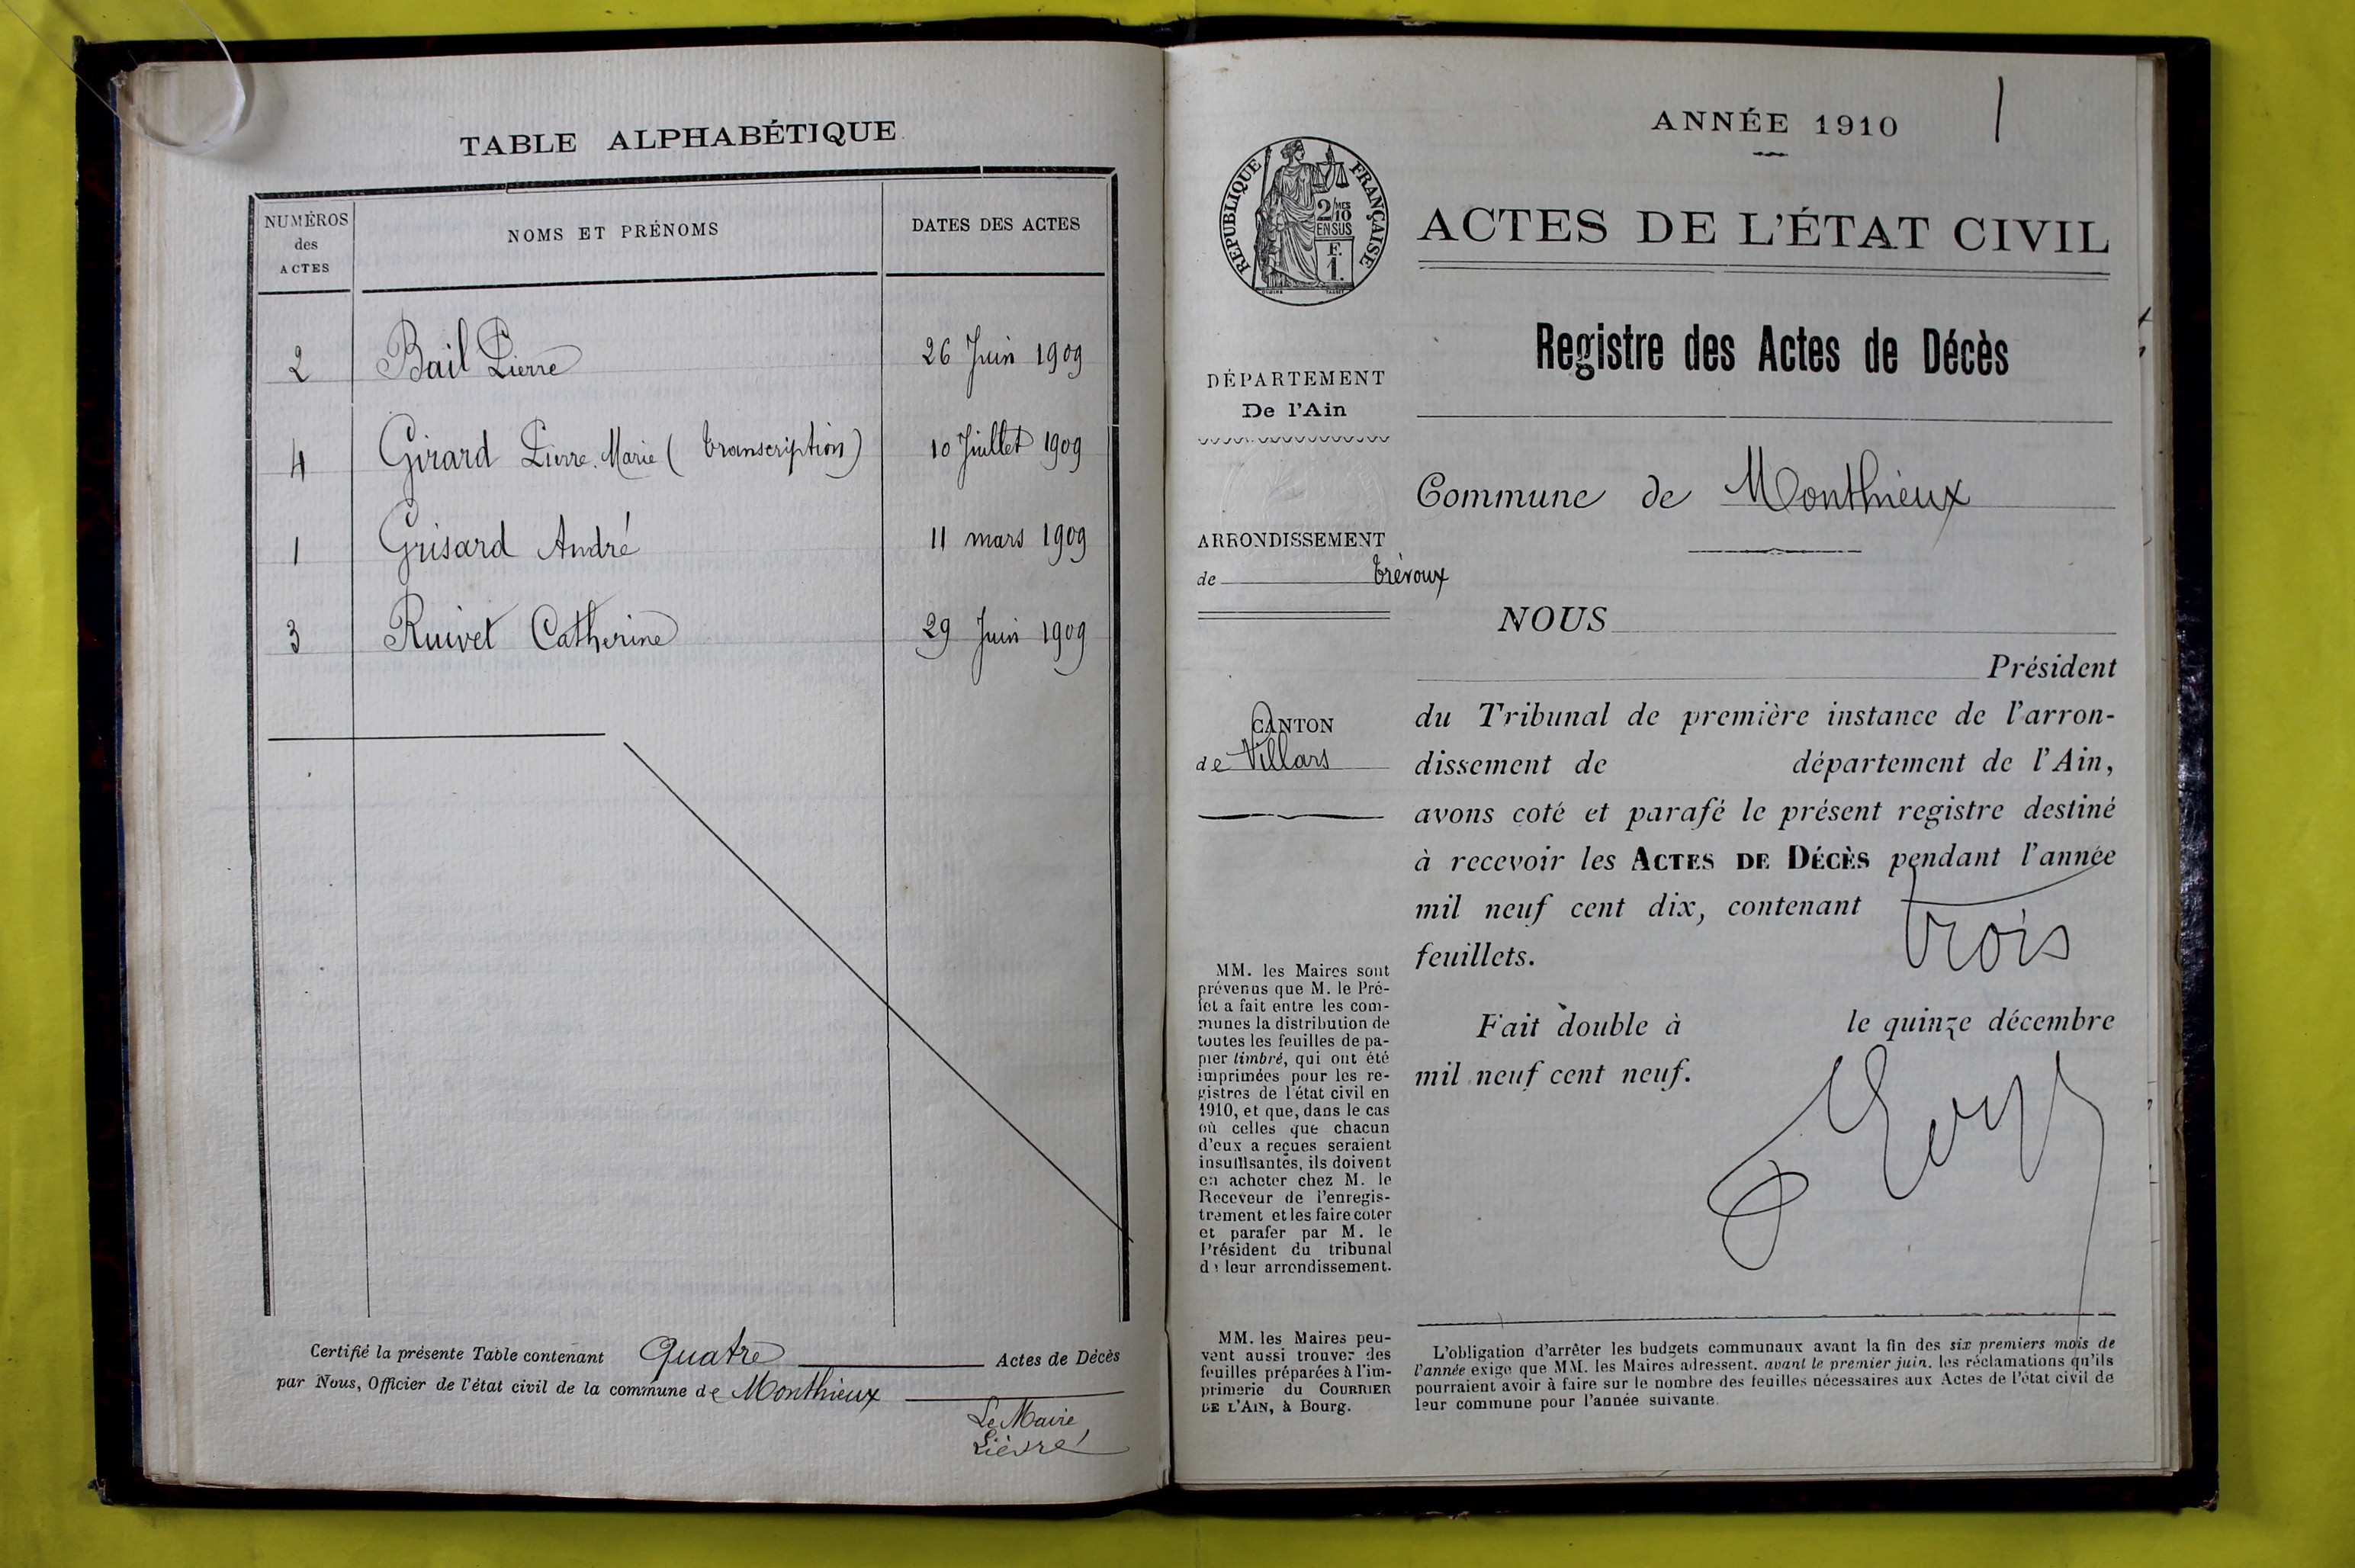 TABLE ALPHABÉTIQUE
NUMÉROS des ACTES
NOMS ET PRÉNOMS
DATES DES ACTES
2 Bail Pierre 26 Juin 1909
4 Girard Pierre Marie (transcription) 10 Juillet 1909
1 Grisard André 11 mars 1909
3 Ruivet Catherine 29 Juin 1909
Certifié la présente Table contenant Quatre Actes de Décès
par Nous, Officier de l'état civil de la commune de Monthieux
Le Maire
Lièvre
1
ANNÉE 1910
RÉPUBLIQUE FRANÇAISE
2/10 MES
EN SUS
F.
1.
ACTES DE L'ÉTAT CIVIL
Registre des Actes de Décès
DÉPARTEMENT
De l'Ain
ARRONDISSEMENT
de Trévoux
CANTON
de Villars
MM. les Maires sont
prévenus que M. le Pré-
fet a fait entre les com-
munes la distribution de
toutes les feuilles de pa-
pier timbré, qui ont été
imprimées pour les re-
gistres de l'état civil en
1910, et que, dans le cas
où celles que chacun
d'eux a reçues seraient
insuffisantes, ils doivent
en acheter chez M. le
Receveur de l'enregis-
trement et les faire coter
et parafer par M. le
Président du tribunal
de leur arrondissement.
MM. les Maires peu-
vent aussi trouver des
feuilles préparées à l'im-
primerie du COURRIER
DE L'AIN, à Bourg.
Commune de Monthieux
NOUS
Président
du Tribunal de première instance de l'arron-
dissement de département de l'Ain,
avons coté et parafé le présent registre destiné
à recevoir les ACTES DE DÉCÈS pendant l'année
mil neuf cent dix, contenant trois
feuillets.
Fait double à le quinze décembre
mil neuf cent neuf.
L'obligation d'arrêter les budgets communaux avant la fin des six premiers mois de
l'année exige que MM. les Maires adressent, avant le premier juin, les réclamations qu'ils
pourraient avoir à faire sur le nombre des feuilles nécessaires aux Actes de l'état civil de
leur commune pour l'année suivante.